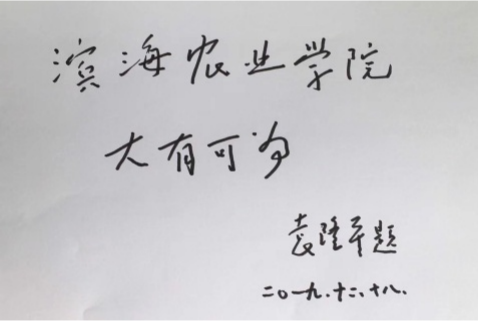 滨海农业学院
大有可为
袁隆平题
二〇一九.十二.十八.